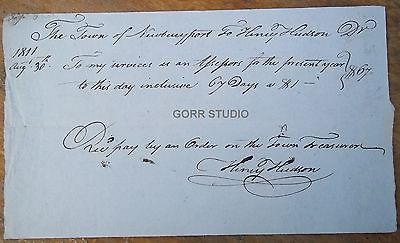 The Town of Newburyport To Henry Hudson Dr
1811
Augt 30th
To my services as an Assessor for the present year
to this day inclusive 67 Days a $1 — $67
GORR STUDIO
Recd pay by an Order on the Town Treasurer
Henry Hudson